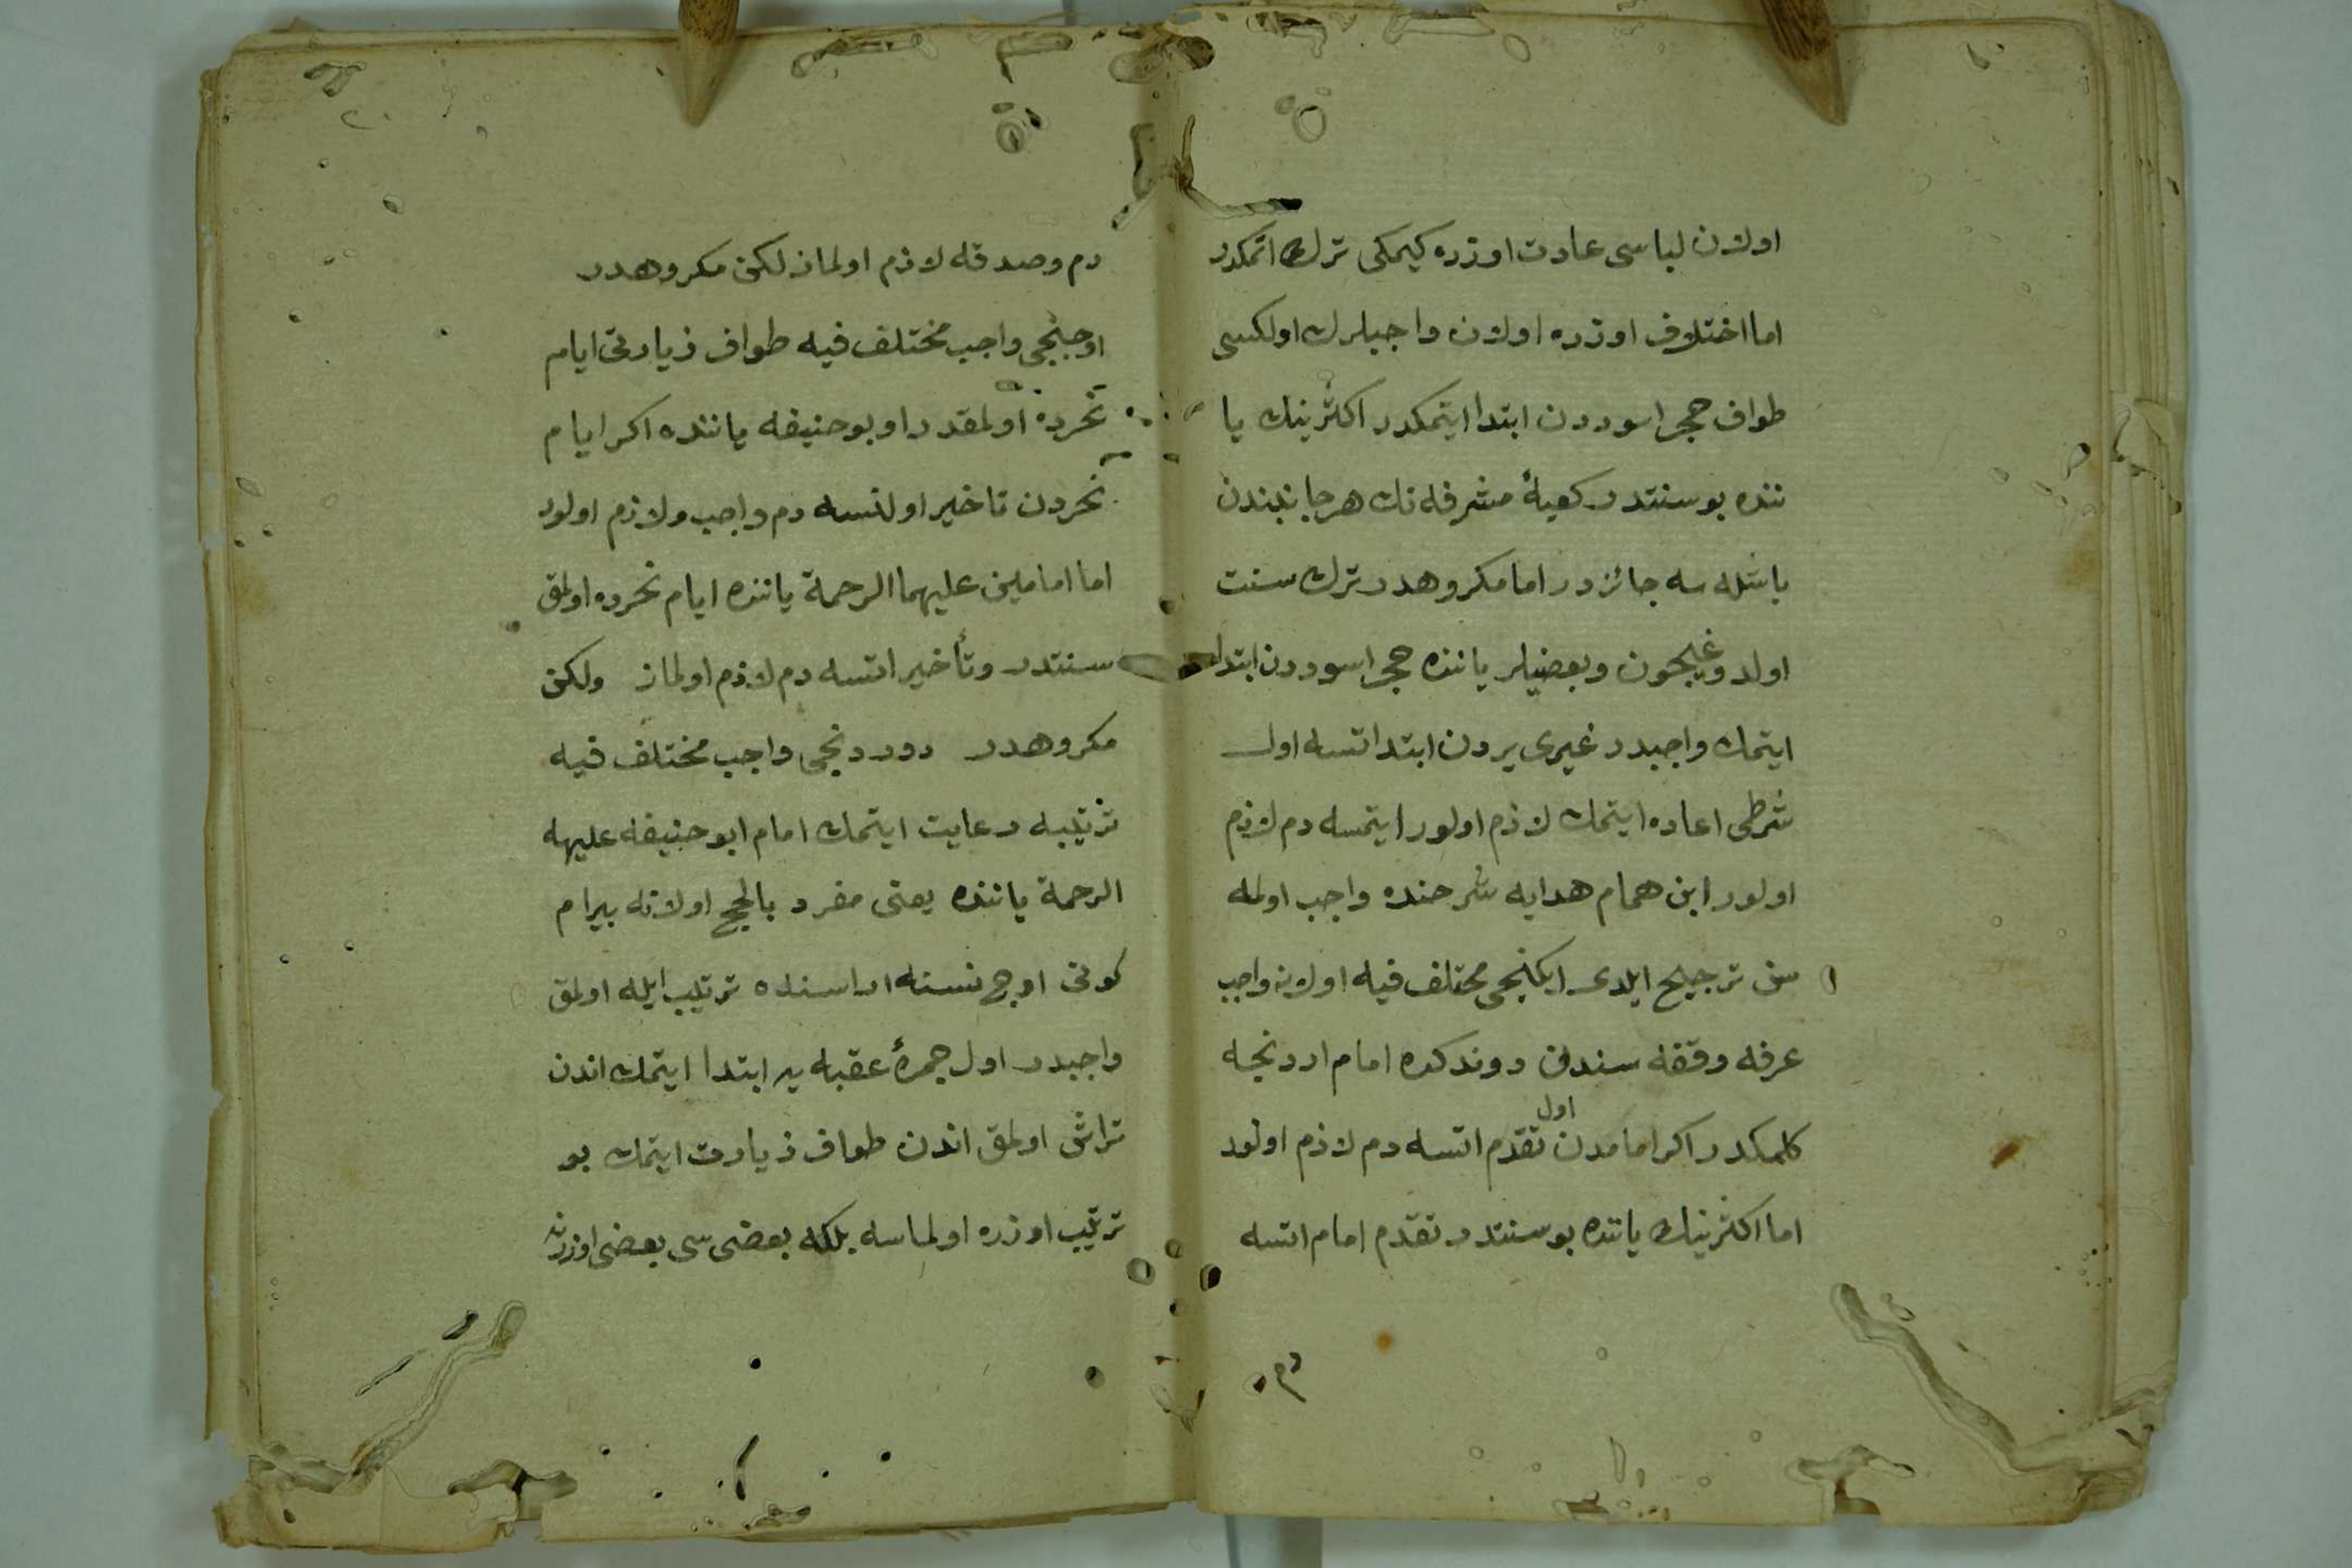 اولان لباسى عادت اوزره كيمكى ترك اتمكدر
اما اختلاف اوزره اولان واجبلرك اولكسى
طواف حجر اسوددن ابتدا ايتمكدر اكثرينك يا
ننده بو سنتدر كعبۀ مشرفه نك هر جانبندن
باشله سه جائزدر اما مكروهدر ترك سنت
اولدوغيچون وبعضيلر ياننده حجر اسوددن ابتدا
ايتمك واجبدر غيرى يردن ابتدا اتسه اول
شرطى اعاده ايتمك لازم اولور ايتمسه دم لازم
اولور ابن همام هدايه شرحنده واجب اولمه
سن ترجيح ايلدى ايكنجى مختلف فيه اولان واجب
عرفه وقفه سندن دوندكده امام اردنجه
كلمكدر اكر امامدن اول تقدم اتسه دم لازم اولور
اما اكثرينك ياننده بو سنتدر تقدم امام اتسه
دم
دم وصدقه لازم اولماز لكن مكروهدر
اوجنجى واجب مختلف فيه طواف زيارتى ايام
نحرده اولمقدر او بوحنيفه ياننده اكر ايام
نحردن تاخير اولنسه دم واجب ولازم اولور
اما امامين عليهما الرحمة ياننده ايام نحرده اولمق
سنتدر وتأخير اتسه دم لازم اولماز ولكن
مكروهدر دوردنجى واجب مختلف فيه
ترتيبه رعايت ايتمك امام ابو حنيفه عليه
الرحمة ياننده يعنى مفرد بالحج اولانه بيرام
كونى اوج نسنه اراسنده ترتيب ايله اولمق
واجبدر اول جمرۀ عقبه يه ابتدا ايتمك اندن
تراش اولمق اندن طواف زيارت ايتمك بو
ترتيب اوزره اولماسه بلكه بعضى سى بعضى اوزرنه